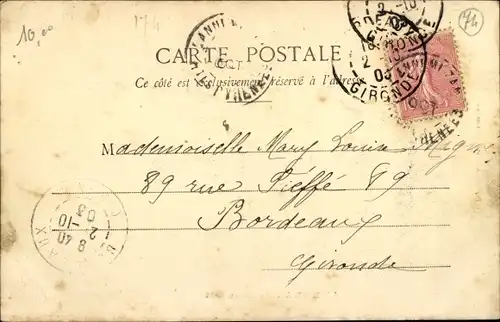 10,00
174
74
CARTE POSTALE
Ce côté est exclusivement réservé à l'adresse
OCT
2 -10
03
GIRONDE
OCT
Mademoiselle Mary Louise
89 rue Fieffé 89
Bordeaux
Gironde
8 40
2 -10
03